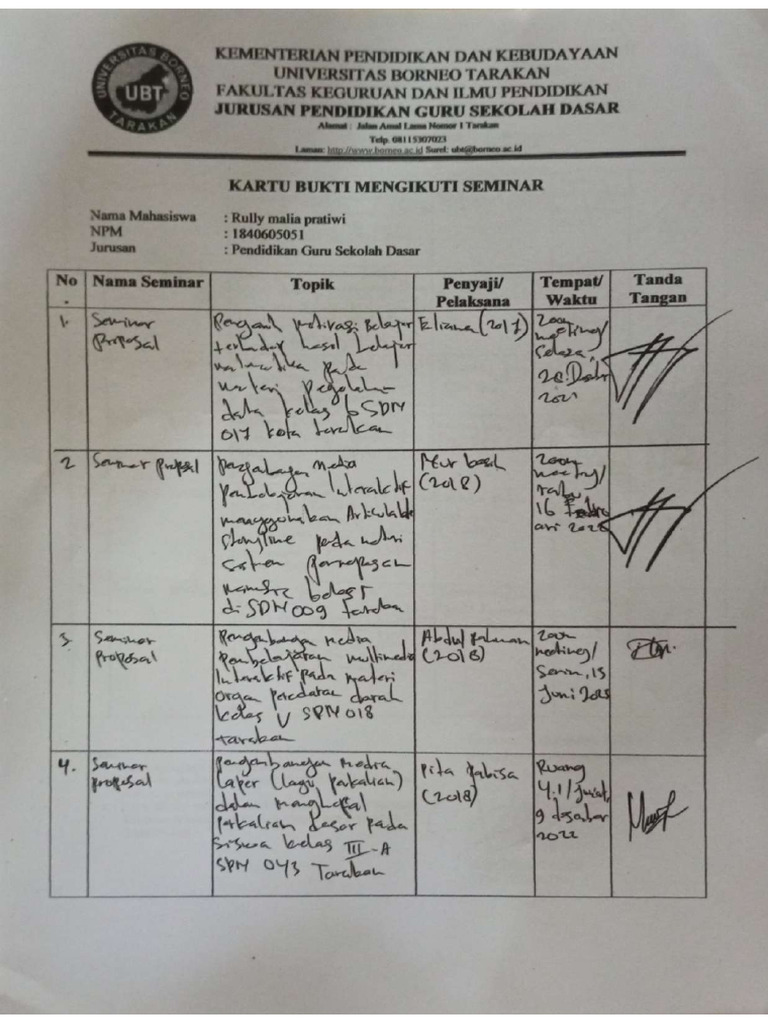 UNIVERSITAS BORNEO
UBT
TARAKAN
KEMENTERIAN PENDIDIKAN DAN KEBUDAYAAN
UNIVERSITAS BORNEO TARAKAN
FAKULTAS KEGURUAN DAN ILMU PENDIDIKAN
JURUSAN PENDIDIKAN GURU SEKOLAH DASAR
Alamat : Jalan Amal Lama Nomor 1 Tarakan
Telp. 08115307023
Laman: http://www.borneo.ac.id Surel: ubt@borneo.ac.id
KARTU BUKTI MENGIKUTI SEMINAR
Nama Mahasiswa : Rully malia pratiwi
NPM : 1840605051
Jurusan : Pendidikan Guru Sekolah Dasar
No. Nama Seminar Topik Penyaji/ Pelaksana Tempat/ Waktu Tanda Tangan
1. Seminar
proposal
Pengaruh motivasi Belajar
terhadap hasil belajar
matematika pada
materi
data kelas 6 SDN
017 kota tarakan
Eliana (2017)
zoom
meeting/
Selasa,
2021
2 Seminar proposal
media
pembelajaran Interaktif
menggunakan Articulate
storyline pada materi
sistem pernapasan
manusia kelas 5
di SDN 009 tarakan
(2018)
zoom
meeting/
rabu,
16
3. Seminar
proposal
Pengembangan media
Pembelajaran multimedia
Interaktif pada materi
organ peredaran darah
kelas V SDN 018
tarakan
Abdul
(2018)
zoom
meeting/
Senin, 15
Juni
4. Seminar
proposal
Pengembangan media
Laper (lagu perkalian)
dalam menghafal
perkalian dasar pada
siswa kelas III-A
SDN 043 Tarakan
(2018)
Ruang
4.1/jumat,
9 desember
2022